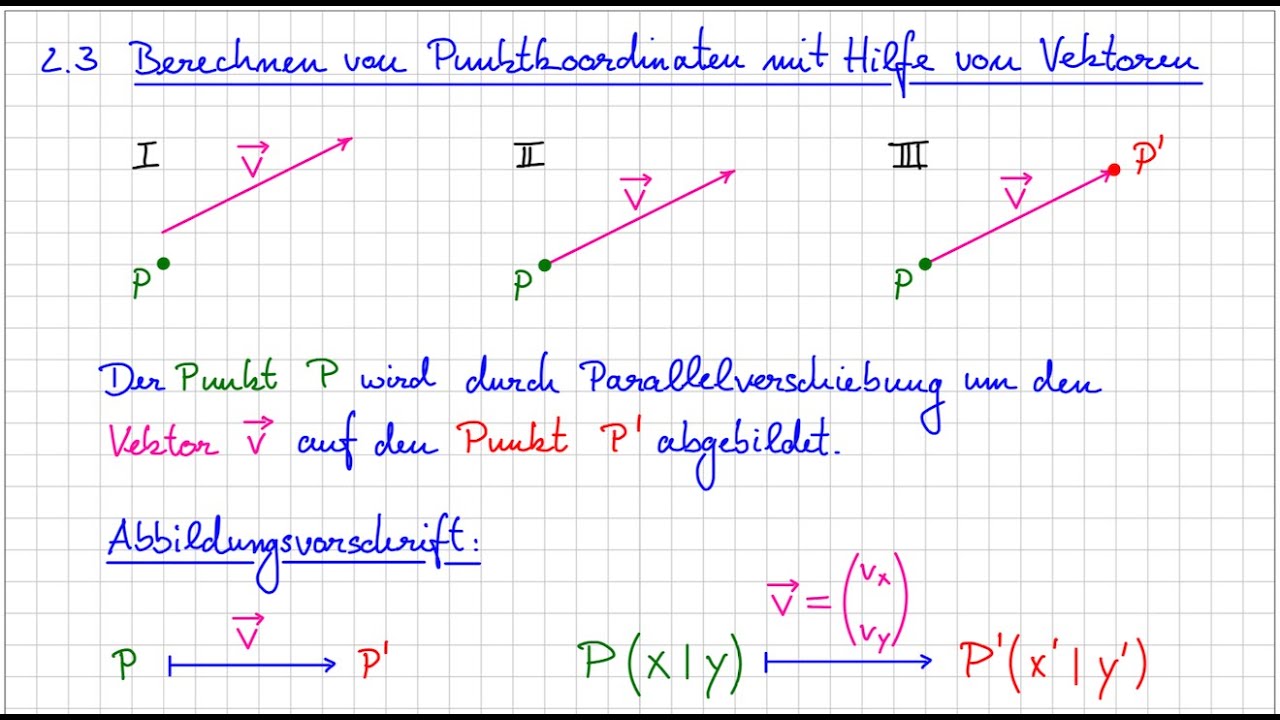 2.3 Berechnen von Punktkoordinaten mit Hilfe von Vektoren
I II III
v⃗ v⃗ v⃗ P'
P P P
Der Punkt P wird durch Parallelverschiebung um den
Vektor v⃗ auf den Punkt P' abgebildet.
Abbildungsvorschrift:
v⃗ v⃗ = (vx vy)
P ⟼ P' P(x|y) ⟼ P'(x'|y')